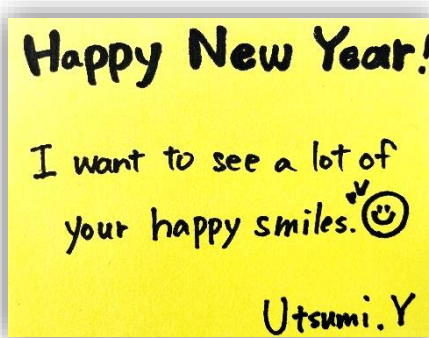 Happy New Year!
I want to see a lot of
your happy smiles.
Utsumi.Y